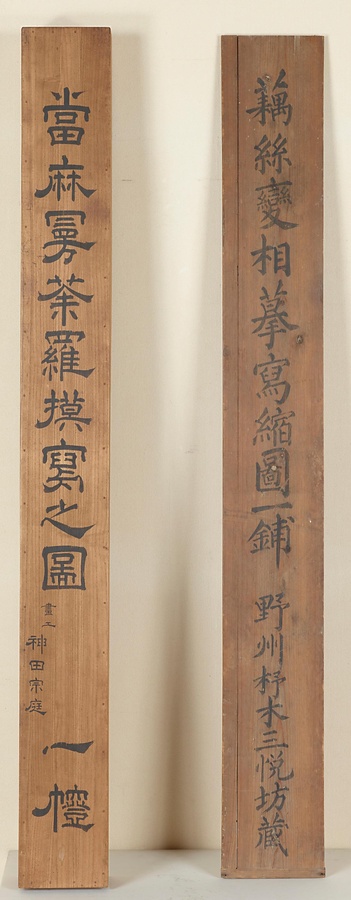 藕絲變相摹寫縮圖一鋪 野州杼木三悦坊藏
當麻曼荼羅摸寫之圖 一
畫工 神田宗庭